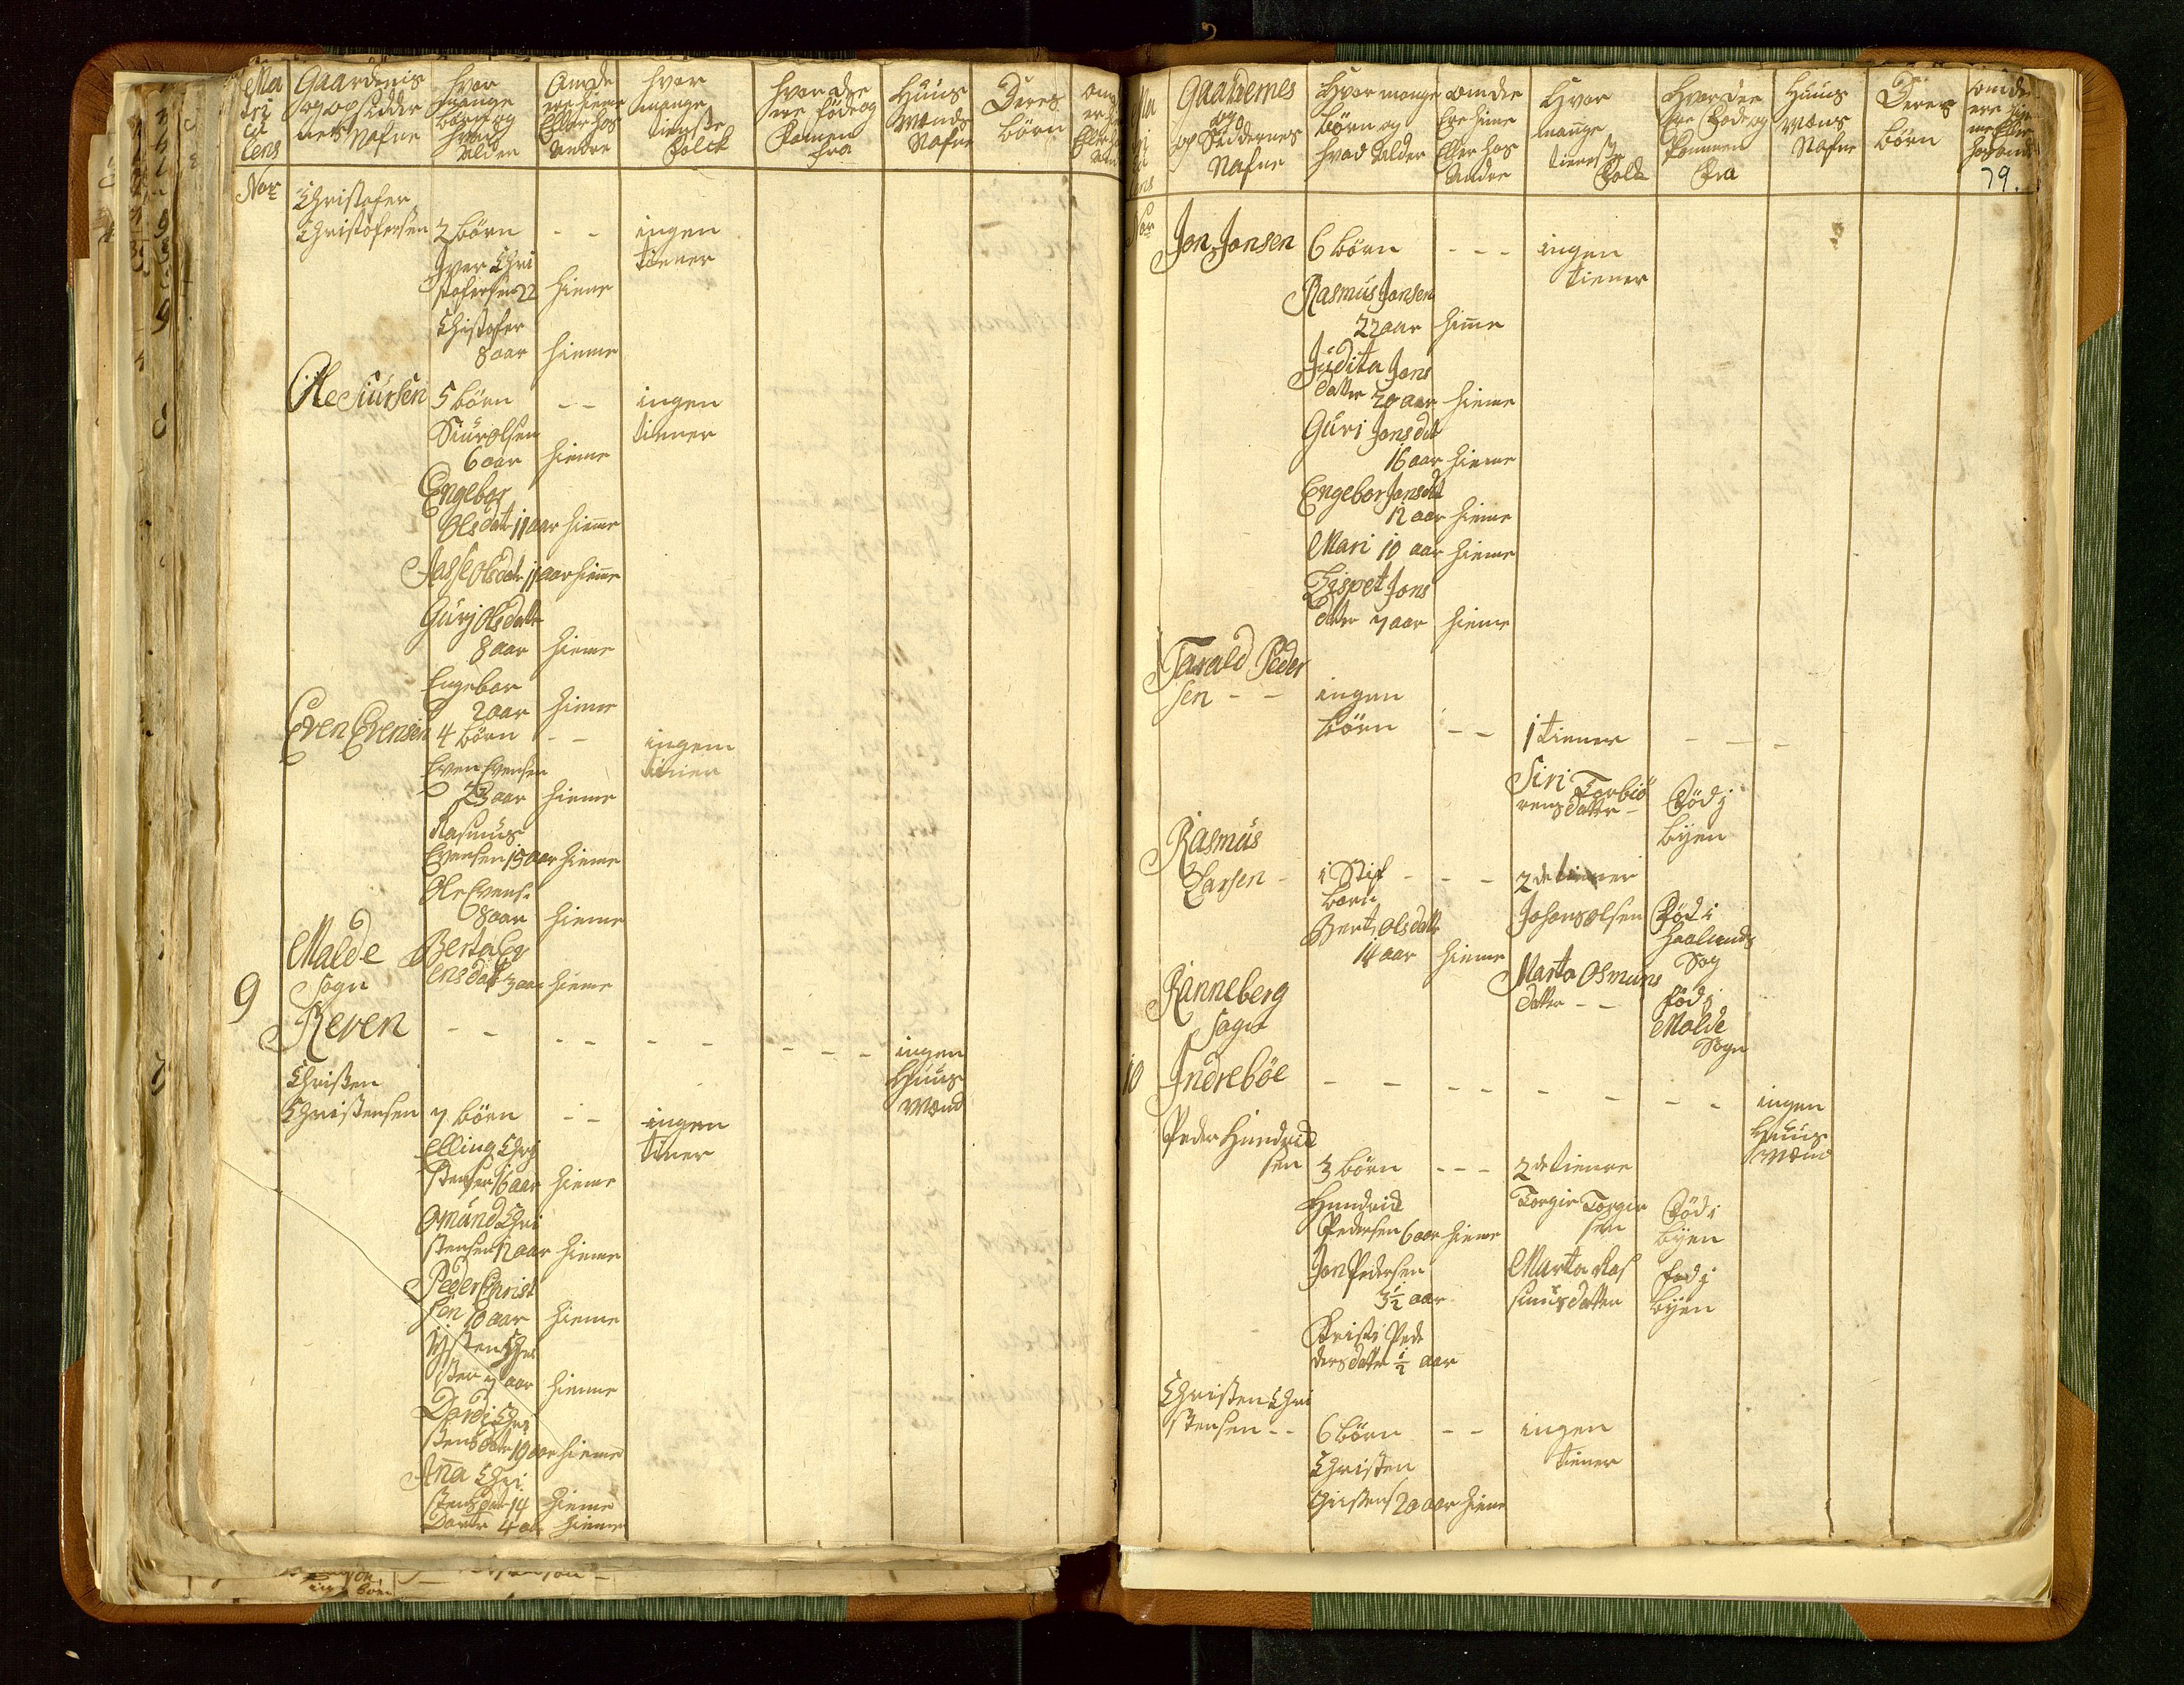 Ma
tri
cu
lens
Gaardenis
og opsidder
nes Nafne
hvor
mange
børn og
hvad
Alder
Om de
ere hieme
Eller hos
Andre
hvor
mange
tieneste
folck
hvor de
ere føde og
komen
fra
Huus
Mænds
Nafne
Deres
børn
Nor
Christofer
Christofersen 2 børn - - ingen
tiener
Iver Chri
stofersen 22 hieme
Christofer
8 aar hieme
Ole Siursen 5 børn - - ingen
tiener
Siur olsen
6 aar hieme
Engebor
Olsdatr 11 aar hieme
Aasse olsdatr 11 aar hieme
Gurj olsdatr
8 aar hieme
Engebor
2 aar hieme
Even Evensen 4 børn - - ingem
tiener
Even Evensen
23 aar hieme
Rasmus
Evensen 15 aar hieme
Ole Evens:
8 aar hieme
Malde Berta Ev
9 Sogn ensdat 3 aar hieme
Reven - - - - - - - - - ingen
Huus
Mænd
Christen
Christensen 7 børn - - ingen
tiener
Elling Chri
stensen 16 aar hieme
Omund Chri
stensen 12 aar hieme
Peder Christ
sen 10 aar hieme
Østen Chri
sten 7 aar hieme
Dordi Chri
stensdatr 19 aar hieme
Ana Chri
stensdat 14 hieme
Dortr 4 aar hieme
Gaardernes
og
opSiddernes
Nafne
Hvor mange
børn og
hvad Alder
om die
Ere hieme
Eller hos
Andre
Hvor
mange
tieneste
Folck
Hvor dee
Ere Føde og
kommen
Fra
Huus
Mæns
Nafne
Deres
børn
om die
ere hie
me Eller
hos andr
79.
Nor
Jon Jonsen 6 børn - - - ingen
tiener
Rasmus Jonsen
22 aar hime
Judita Jons
datter 20 aar hieme
Guri Jonsdat
16 aar hieme
Engebor Jonsdat
12 aar hieme
Mari 10 aar hieme
Lispet Jons
datter 7 aar hieme
Tarald Peder
sen - - ingen
børn - - 1 tiener - - -
Siri Torbiø
rensdatter - Fød j
byen
Rasmus
Larsen - 1 Stif - - - 2 de tiener
barn
Berta olsdatr
14 aar hieme
Johans olsen Fød i
haalands
Sog
Marta Osmuns
datter - - fød j
Malde
Sogn
Ranneberg
Sogn
10 Indrebøe - - - - - - - - ingen
Huus
Mænd
Peder Hendrick
sen 3 børn - - - 2 de tienere
Hendrick
Pedersen 6 aar hieme
Torgier Torgier
sen Fød i
byen
Jon Pedersen
3 1/2 aar
Marta Ras
musdatter fød j
byen
Kristi Ped
dersdatter 1/2 aar
Christen Chri
stensen - - 6 børn - - ingen
tiener
Christen
Christens 20 aar hieme